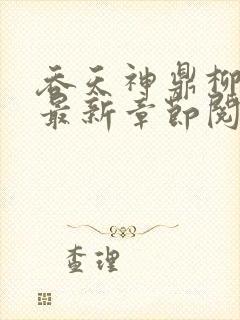 吞天神鼎柳
最新章节阅
查理